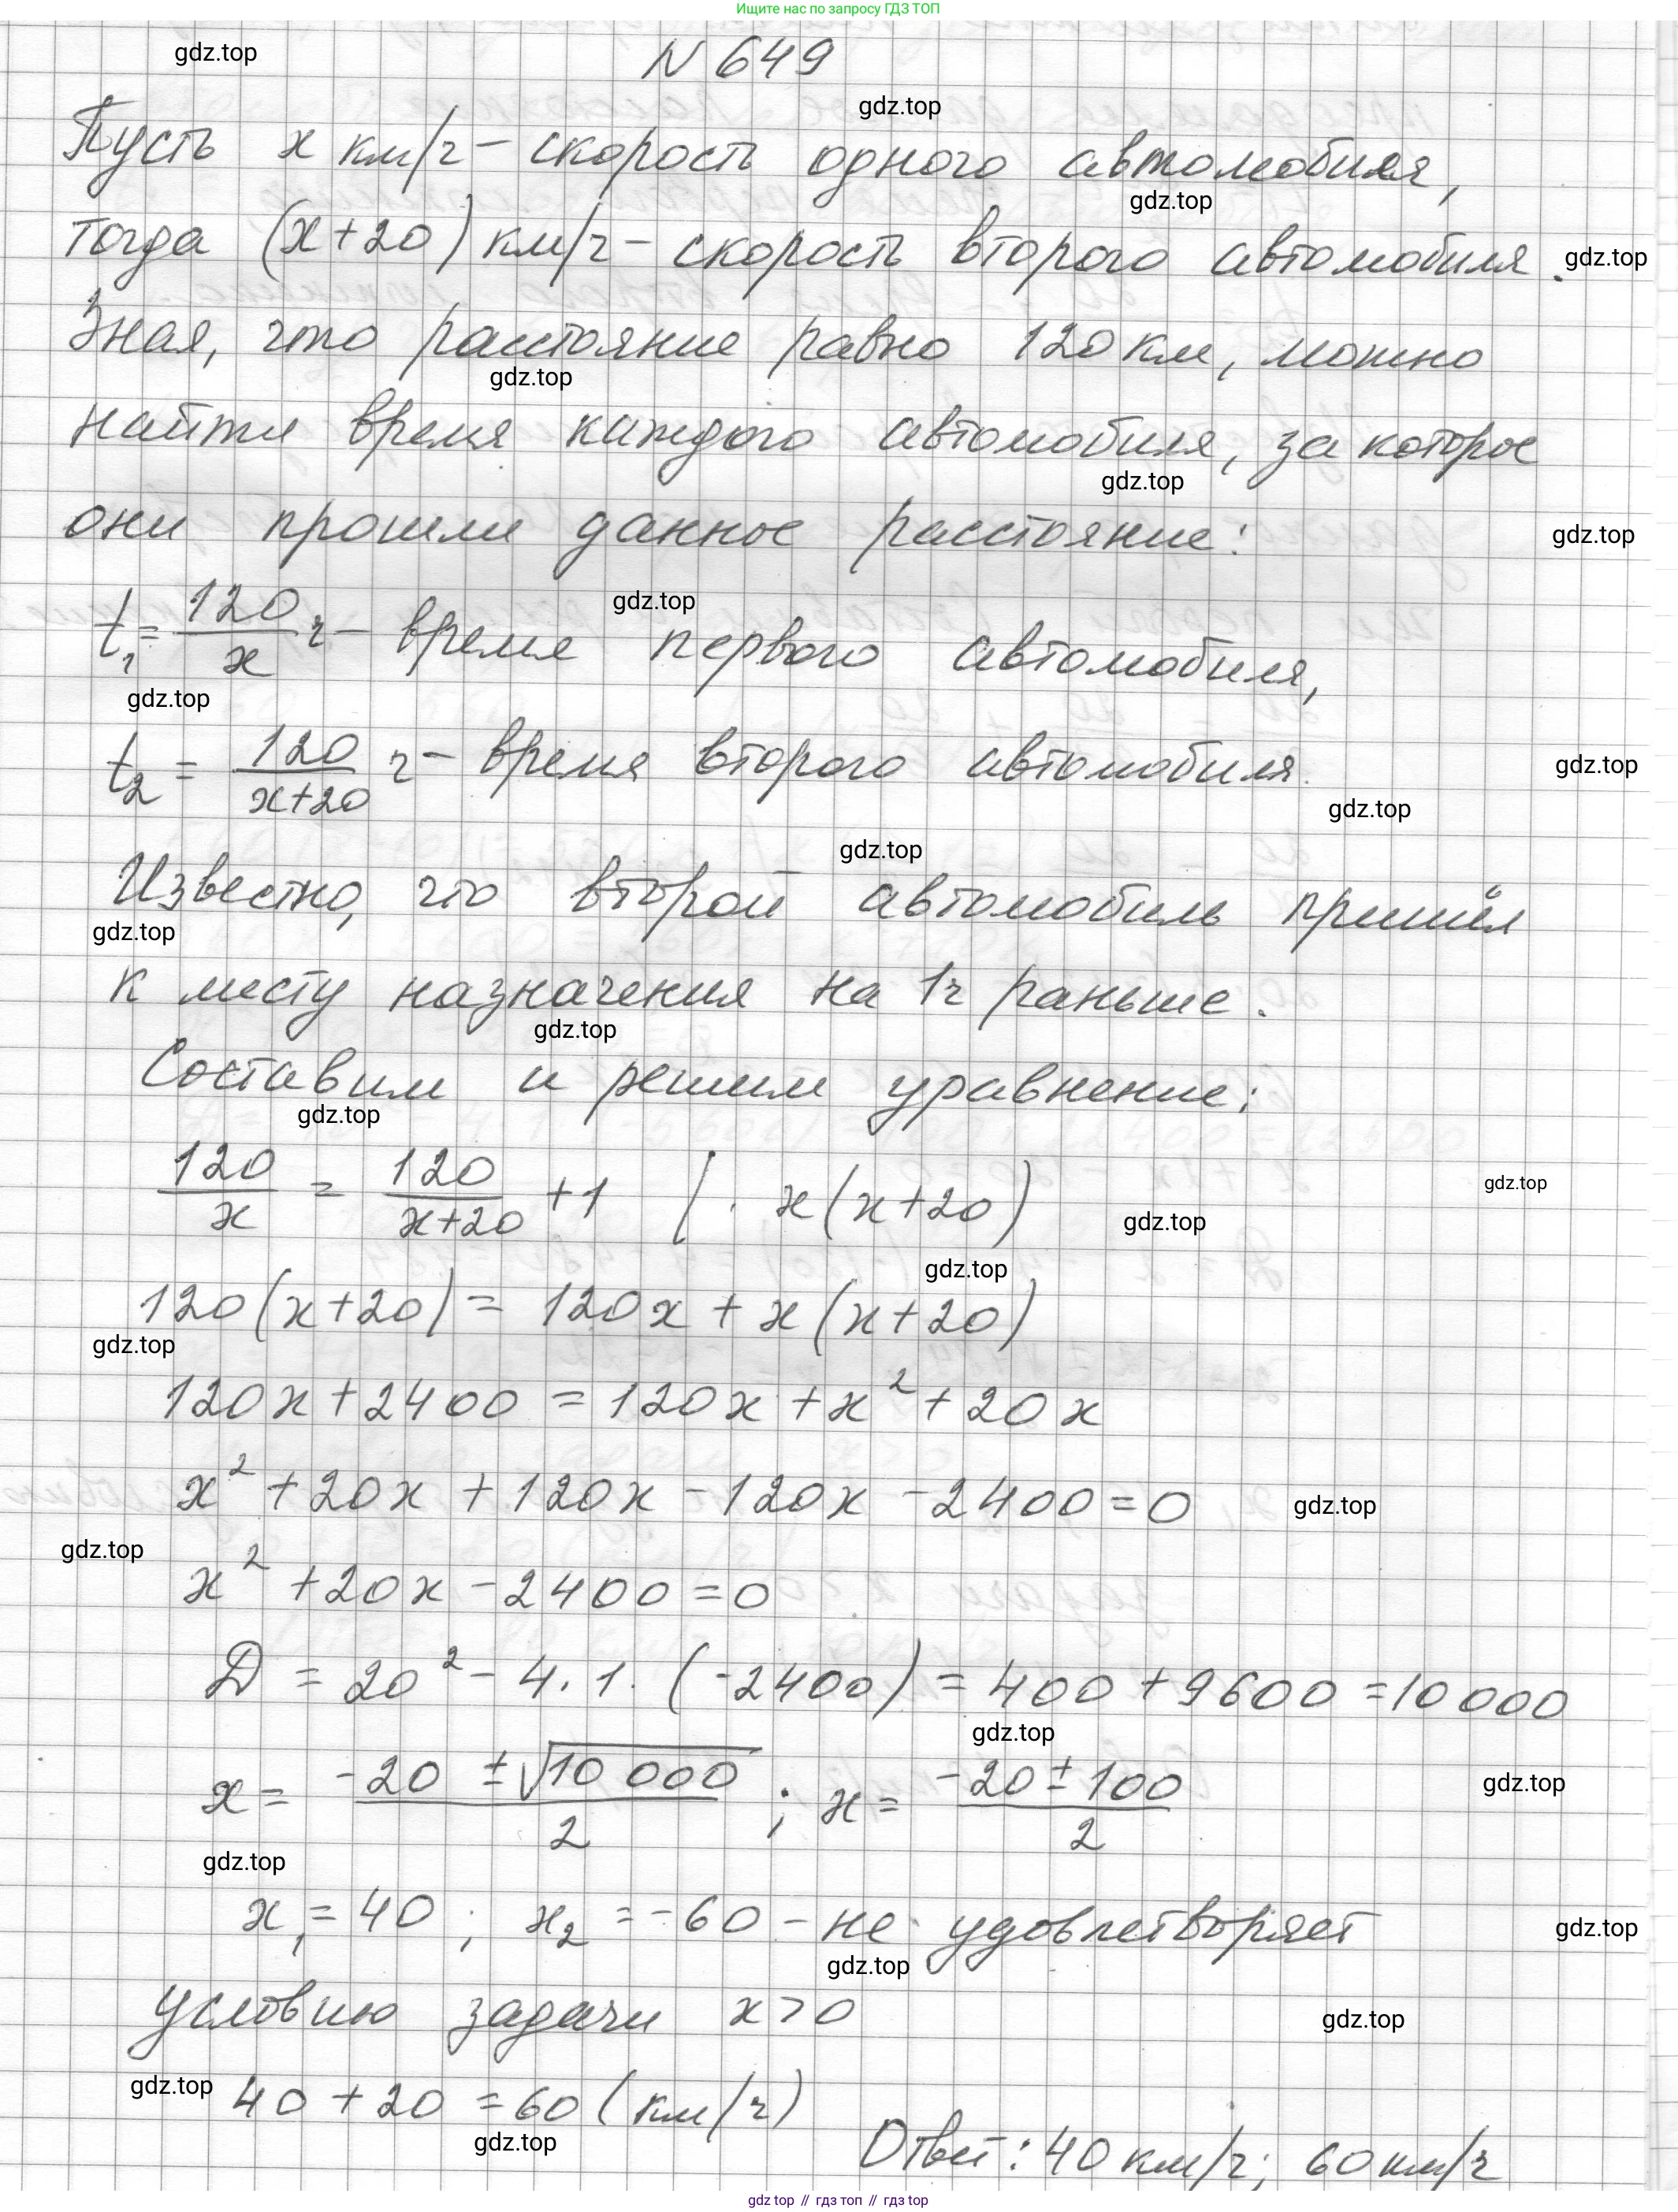 Ищите нас по запросу ГДЗ ТОП
gdz.top
N 649
gdz.top
Пусть x км/ч - скорость одного автомобиля,
gdz.top
тогда (x+20) км/ч - скорость второго автомобиля.
gdz.top
Зная, что расстояние равно 120 км, можно
gdz.top
найти время каждого автомобиля, за которое
gdz.top
они прошли данное расстояние:
gdz.top
gdz.top
t₁ = 120/x ч - время первого автомобиля,
gdz.top
t₂ = 120/(x+20) ч - время второго автомобиля.
gdz.top
gdz.top
gdz.top
Известно, что второй автомобиль пришёл
gdz.top
к месту назначения на 1ч раньше.
gdz.top
Составим и решим уравнение:
gdz.top
120/x = 120/(x+20) + 1 | · x(x+20)
gdz.top
gdz.top
gdz.top
120(x+20) = 120x + x(x+20)
gdz.top
120x + 2400 = 120x + x² + 20x
x² + 20x + 120x - 120x - 2400 = 0
gdz.top
gdz.top
x² + 20x - 2400 = 0
D = 20² - 4 · 1 · (-2400) = 400 + 9600 = 10 000
gdz.top
x = (-20 ± √10 000)/2 ; x = (-20 ± 100)/2
gdz.top
gdz.top
x₁ = 40 ; x₂ = -60 - не удовлетворяет
gdz.top
gdz.top
условию задачи x > 0
gdz.top
gdz.top
40 + 20 = 60 (км/ч)
gdz.top
Ответ: 40 км/ч; 60 км/ч
gdz.top // гдз топ // gdz.top